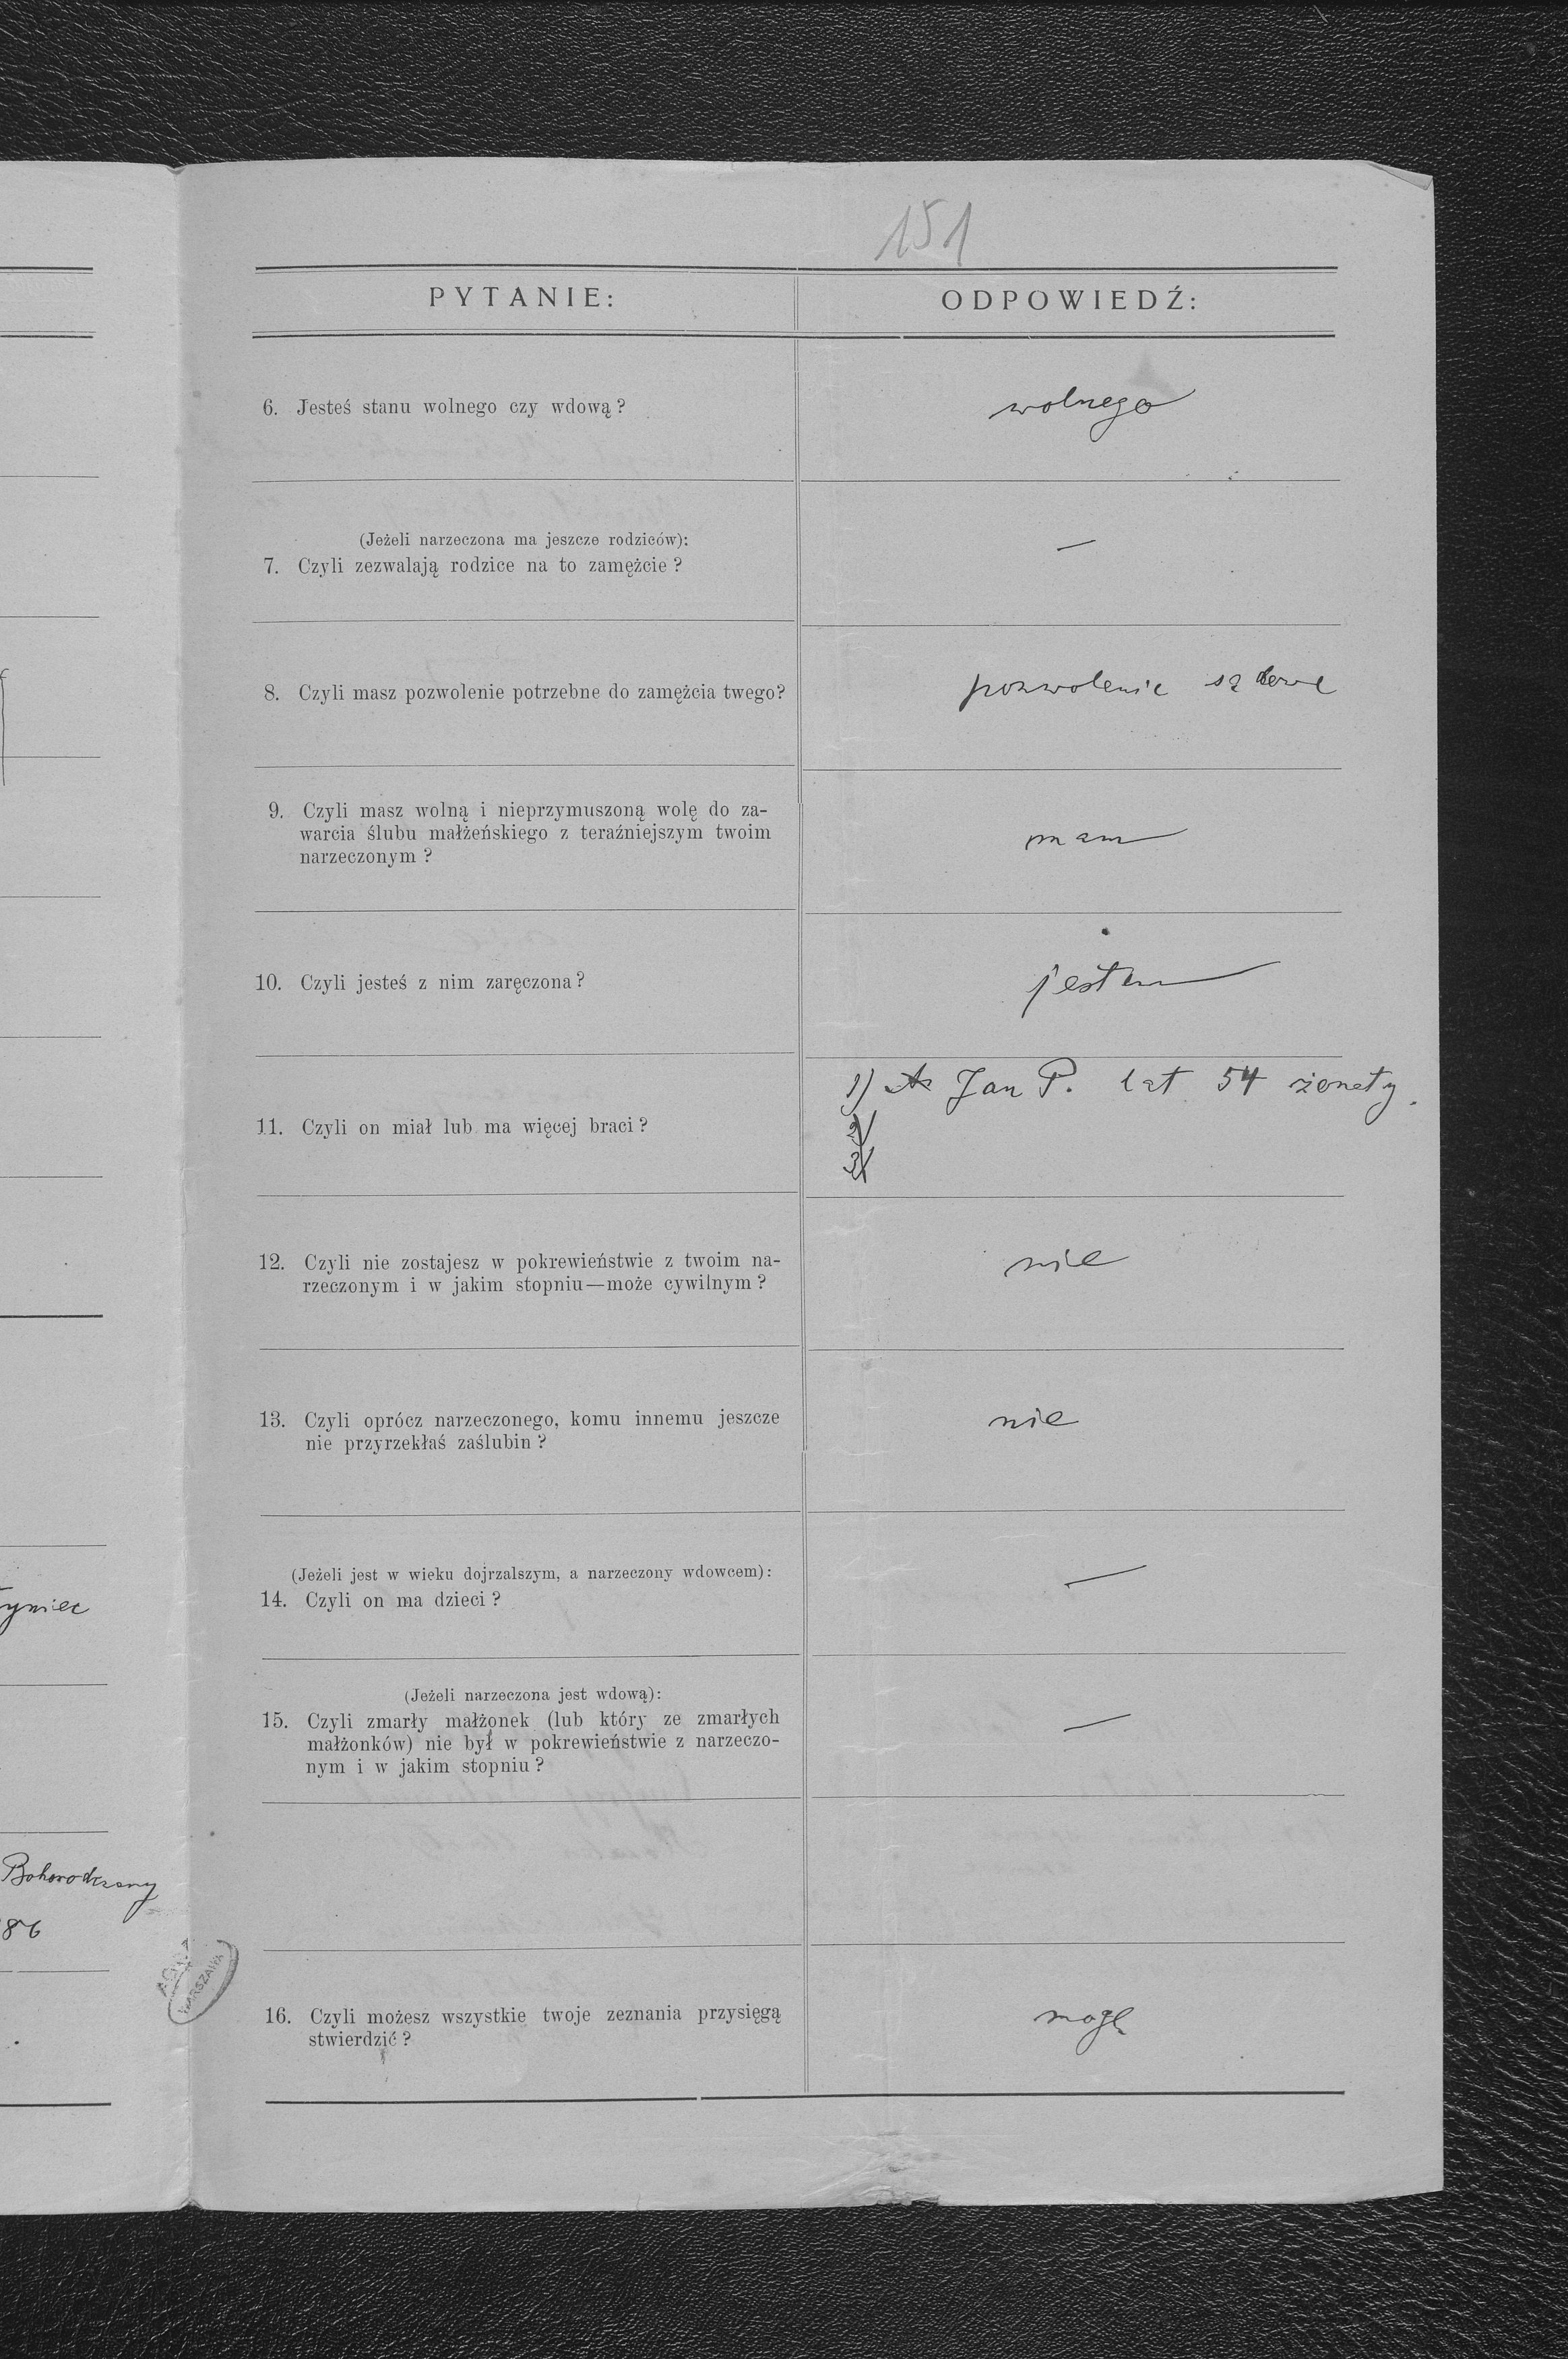 151
PYTANIE:
ODPOWIEDŹ:
6. Jesteś stanu wolnego czy wdową?
wolnego
(Jeżeli narzeczona ma jeszcze rodziców):
7. Czyli zezwalają rodzice na to zamężcie?
—
8. Czyli masz pozwolenie potrzebne do zamężcia twego?
pozwolenie sądowe
9. Czyli masz wolną i nieprzymuszoną wolę do za-
warcia ślubu małżeńskiego z teraźniejszym twoim
narzeczonym?
mam
10. Czyli jesteś z nim zaręczona?
jestem
11. Czyli on miał lub ma więcej braci?
1) Jan P. lat 54 żonaty.
2)
3)
12. Czyli nie zostajesz w pokrewieństwie z twoim na-
rzeczonym i w jakim stopniu—może cywilnym?
nie
13. Czyli oprócz narzeczonego, komu innemu jeszcze
nie przyrzekłaś zaślubin?
nie
(Jeżeli jest w wieku dojrzalszym, a narzeczony wdowcem):
14. Czyli on ma dzieci?
—
(Jeżeli narzeczona jest wdową):
15. Czyli zmarły małżonek (lub który ze zmarłych
małżonków) nie był w pokrewieństwie z narzeczo-
nym i w jakim stopniu?
—
16. Czyli możesz wszystkie twoje zeznania przysięgą
stwierdzić?
mogę
Bohorodczany
86
WARSZAWA